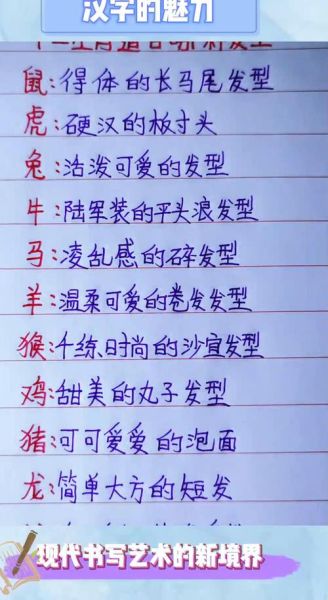 汉字的魅力
十二生肖适合哪种发型
鼠:得体的长马尾发型
虎:硬汉的板寸头
兔:活泼可爱的发型
牛:陆军装的平头浪发型
马:凌乱感的碎发型
羊:温柔可爱的卷发发型
猴:干练时尚的沙宣发型
鸡:甜美的丸子发型
猪:可可爱爱的泡面
龙:简单大方的短发
现代书写艺术的新境界